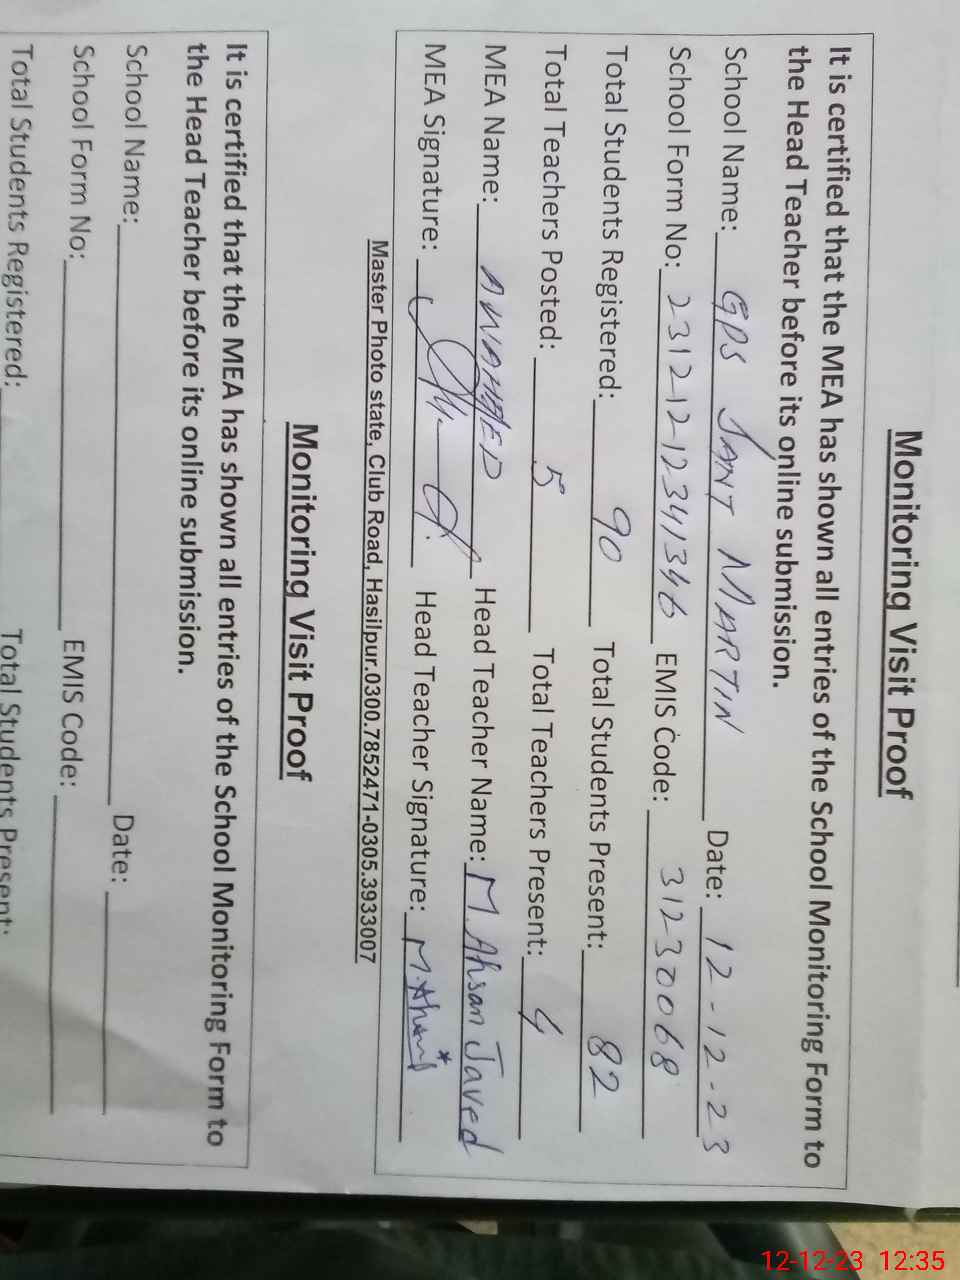 Monitoring Visit Proof
It is certified that the MEA has shown all entries of the School Monitoring Form to
the Head Teacher before its online submission.
School Name: GPS SANT MARTIN Date: 12-12-23
School Form No: 23121212341346 EMIS Code: 31230068
Total Students Registered: 90 Total Students Present: 82
Total Teachers Posted: 5 Total Teachers Present: 4
MEA Name: Head Teacher Name: M. Ahsan Javed
MEA Signature: Head Teacher Signature: M. Ahsan
Master Photo state, Club Road, Hasilpur.0300.7852471-0305.3933007
Monitoring Visit Proof
It is certified that the MEA has shown all entries of the School Monitoring Form to
the Head Teacher before its online submission.
School Name: Date:
School Form No: EMIS Code:
Total Students Registered: Total Students Present:
12-12-23 12:35